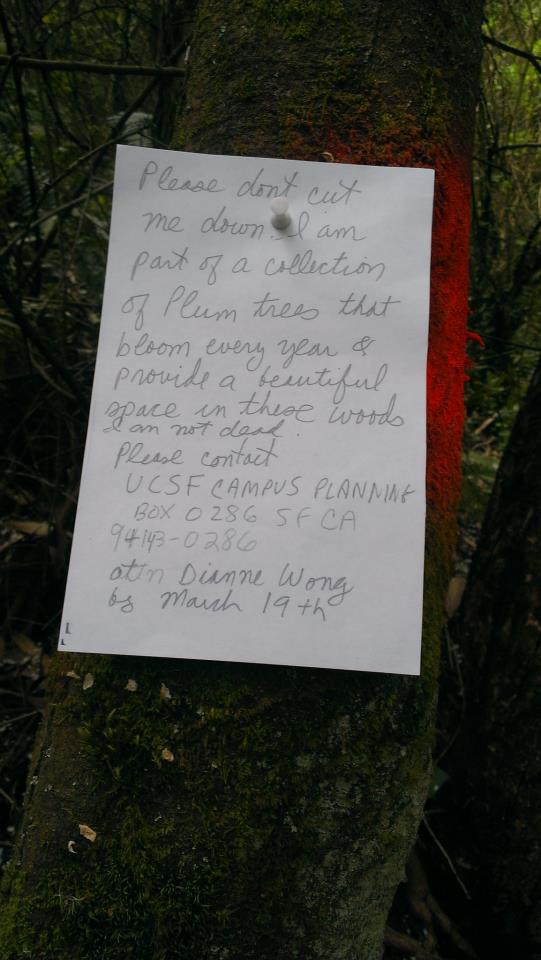 Please dont cut
me down. I am
part of a collection
of Plum trees that
bloom every year &
provide a beautiful
space in these woods
I am not dead.
Please contact
UCSF CAMPUS PLANNING
BOX 0286 SF CA
94143-0286
attn Dianne Wong
by March 19th